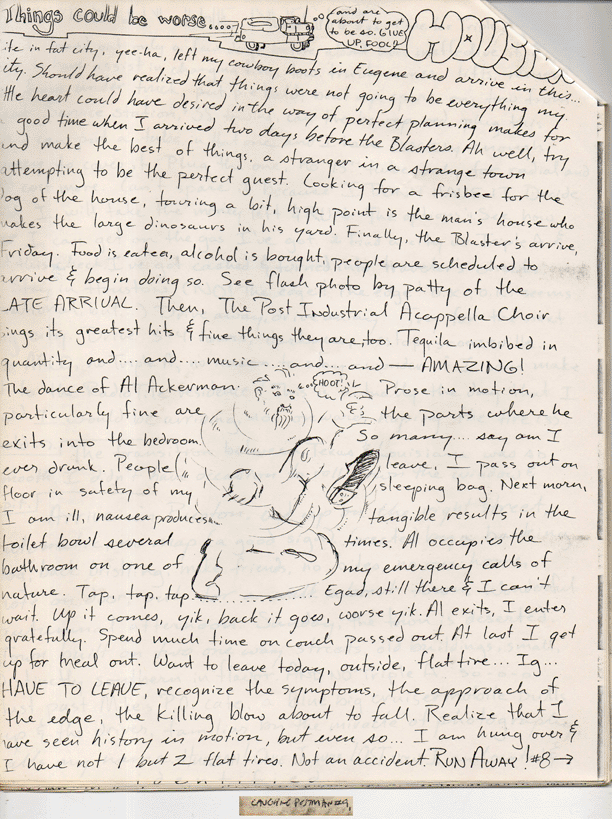 Things could be worse....
and are
about to get
to be so. GIVE
UP, FOOL!!
HOUSTON
life in fat city, yee-ha, left my cowboy boots in Eugene and arrive in this...
city. Should have realized that things were not going to be everything my
little heart could have desired in the way of perfect planning makes for
good time when I arrived two days before the Blasters. Ah well, try
and make the best of things, a stranger in a strange town
attempting to be the perfect guest. Looking for a frisbee for the
dog of the house, touring a bit, high point is the man's house who
makes the large dinosaurs in his yard. Finally, the Blaster's arrive,
Friday. Food is eaten, alcohol is bought, people are scheduled to
arrive & begin doing so. See flash photo by patty of the
LATE ARRIVAL. Then, The Post Industrial Acappella Choir
sings its greatest hits & fine things they are, too. Tequila imbibed in
quantity and.... and.... music ....and... and — AMAZING!
The dance of Al Ackerman. Prose in motion,
SHOOT!
particularly fine are the parts where he
exits into the bedroom So many.... say am I
ever drunk. People leave, I pass out on
floor in safety of my sleeping bag. Next morn,
I am ill, nausea produces... tangible results in the
toilet bowl several times. Al occupies the
bathroom on one of my emergency calls of
nature. Tap, tap, tap............... Egad, still there & I can't
wait. Up it comes, yik, back it goes, worse yik. Al exits, I enter
gratefully. Spend much time on couch passed out. At last I get
up for meal out. Want to leave today, outside, flat tire... Ig...
HAVE TO LEAVE, recognize the symptoms, the approach of
the edge, the killing blow about to fall. Realize that I
have seen history in motion, but even so... I am hung over &
I have not 1 but 2 flat tires. Not an accident. RUN AWAY! #8→